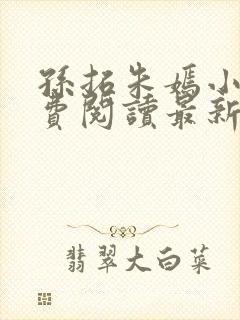 孫拓朱媽小
費閱讀最新
翡翠大白菜